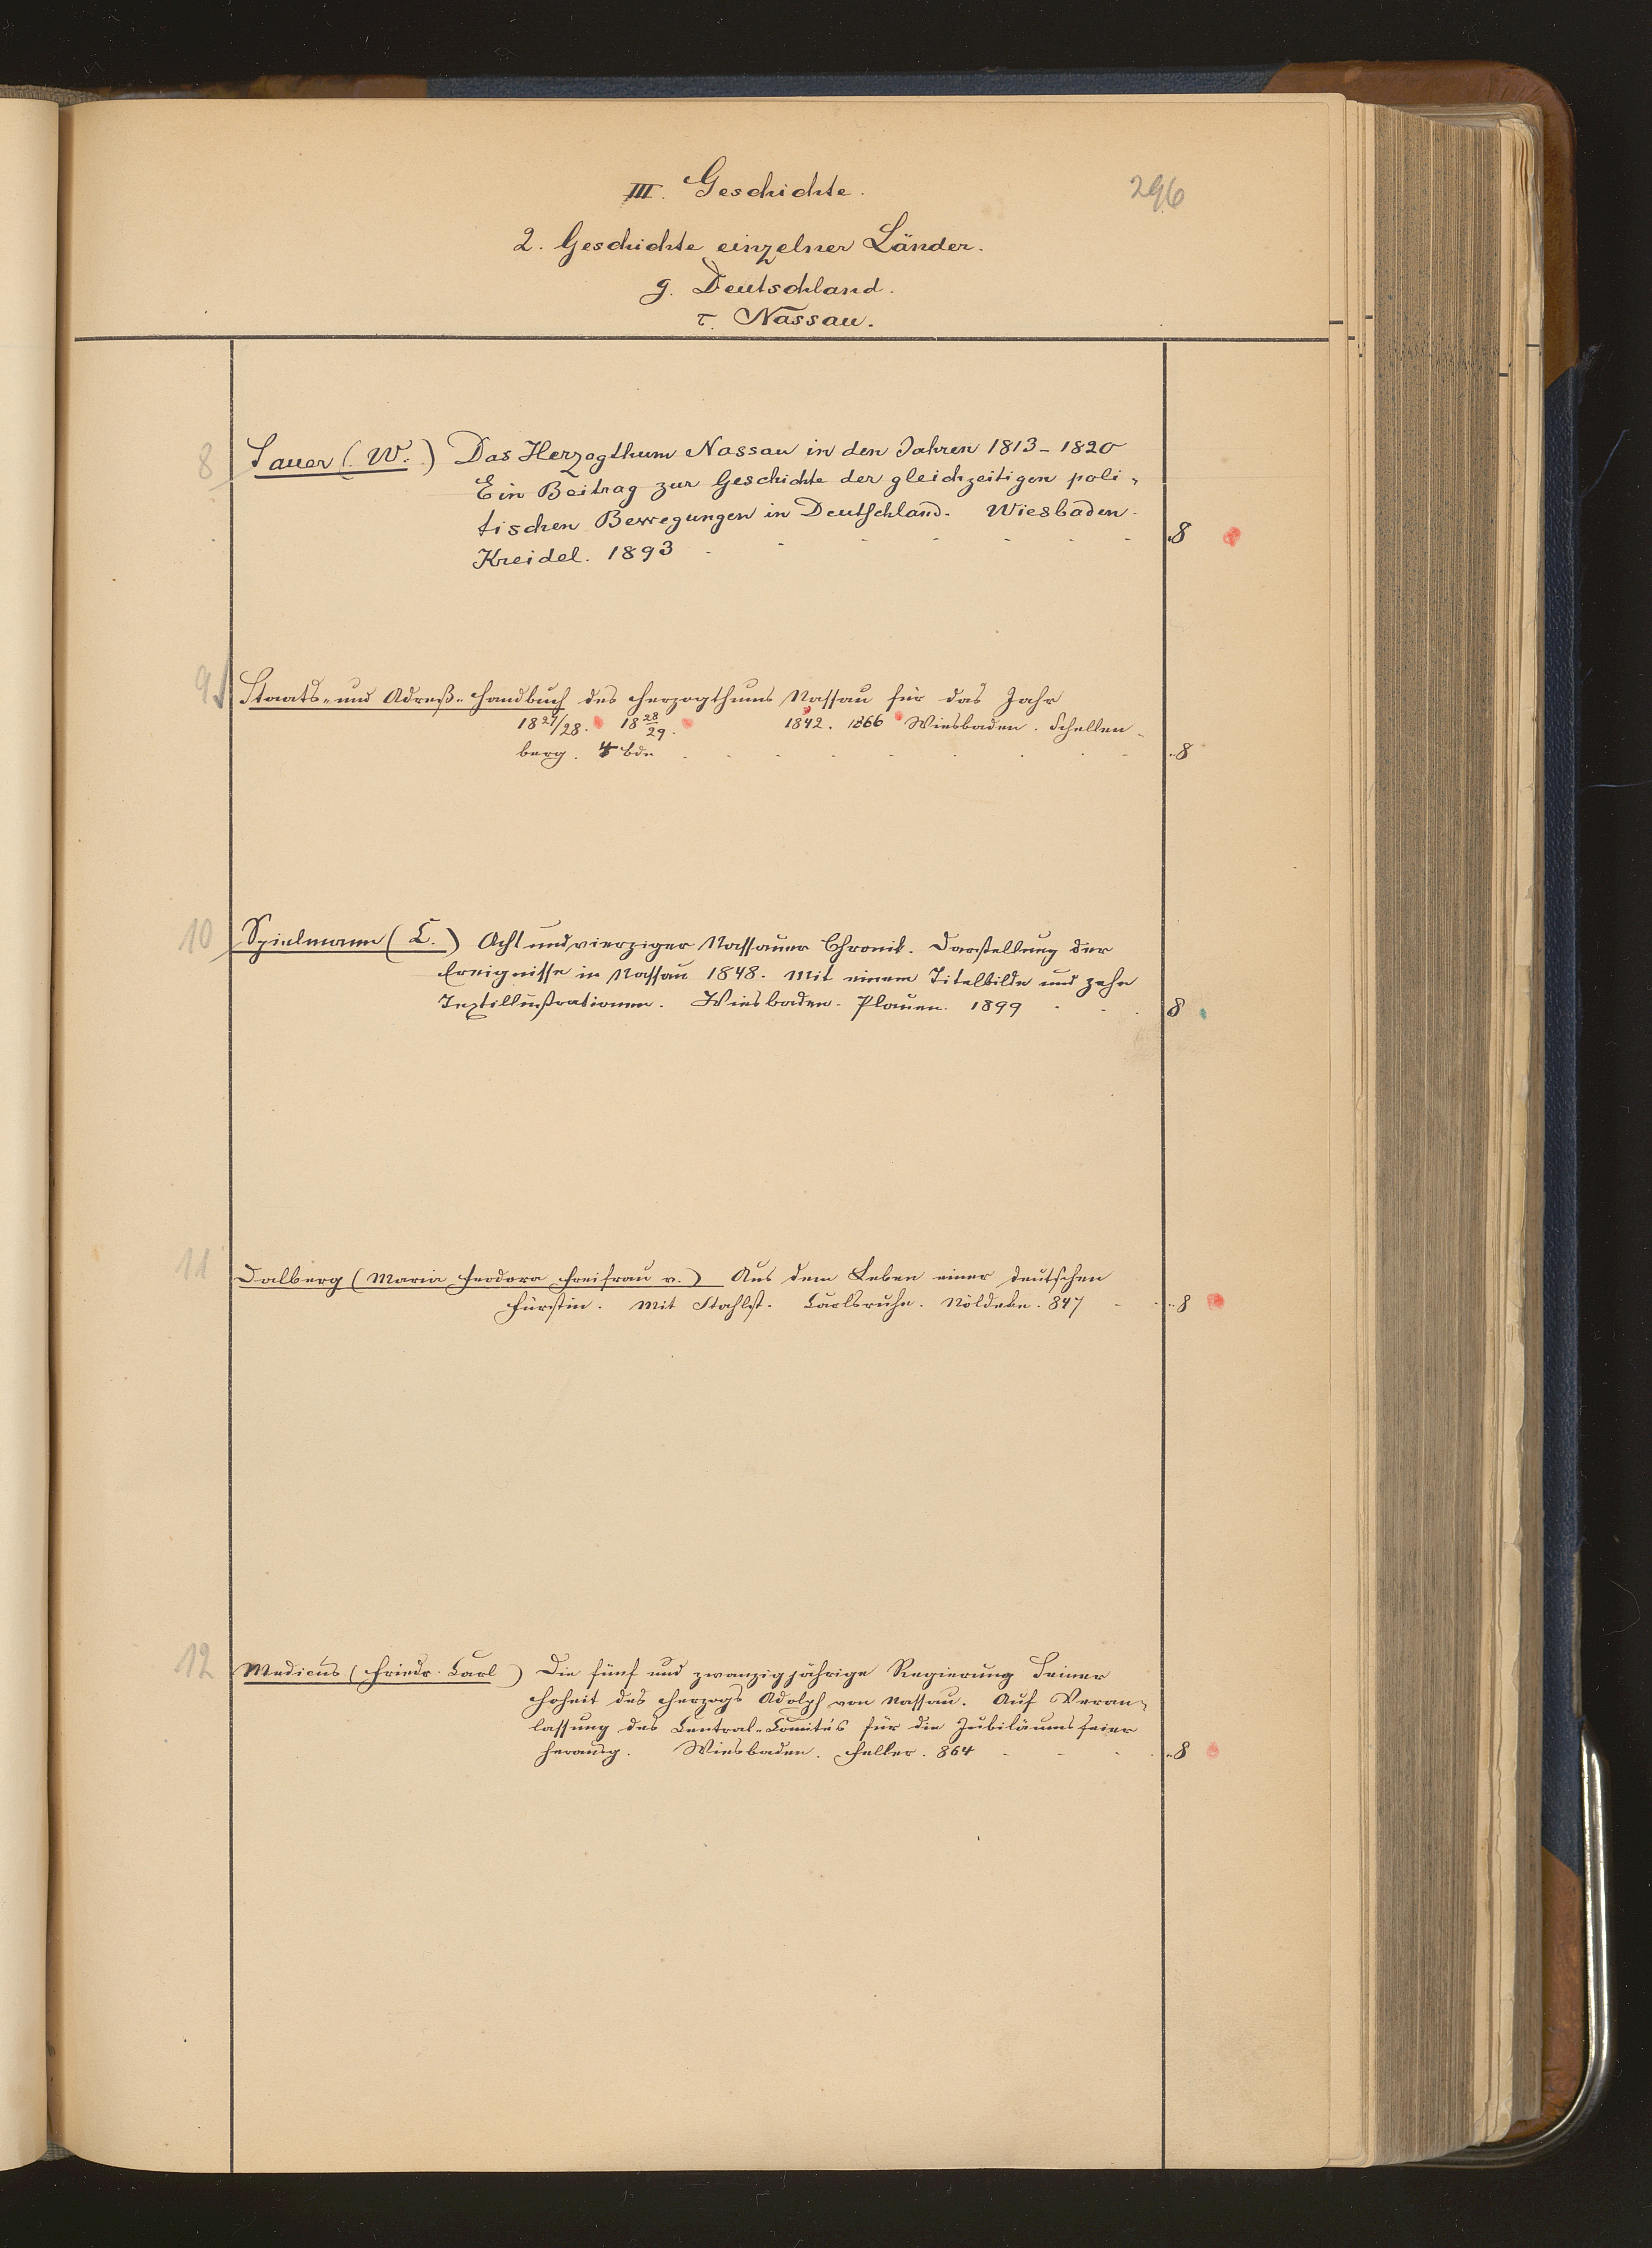 III. Geschichte.
296
2. Geschichte einzelner Länder.
g. Deutschland.
τ. Nassau.
8 Sauer (W.) Das Herzogthum Nassau in den Jahren 1813-1820
Ein Beitrag zur Geschichte der gleichzeitigen poli-
tischen Bewegungen in Deutschland. Wiesbaden.
Kreidel. 1893 8
9 Staats- und Adreß-Handbuch des Herzogthums Nassau für das Jahr
1827/28. 1828/29. 1842. 1866 Wiesbaden. Schellen-
berg. 4 Bde 8
10 Spielmann (C.) Achtundvierziger Nassauer Chronik. Darstellung der
Ereignisse in Nassau 1848. Mit einem Titelbilde und zehn
Textillustrationen. Wiesbaden. Plauen. 1899 8
11 Dalberg (Maria Feodora Freifrau v.) Aus dem Leben einer deutschen
Fürstin. Mit Stahlst. Carlsruhe. Nöldeke. 847 8
12 Medicus (Friedr. Carl) Die fünf und zwanzigjährige Regierung Seiner
Hoheit des Herzogs Adolph von Nassau. Auf Veran-
lassung des Central-Comités für die Jubiläumsfeier
herausg. Wiesbaden. Feller. 864 8